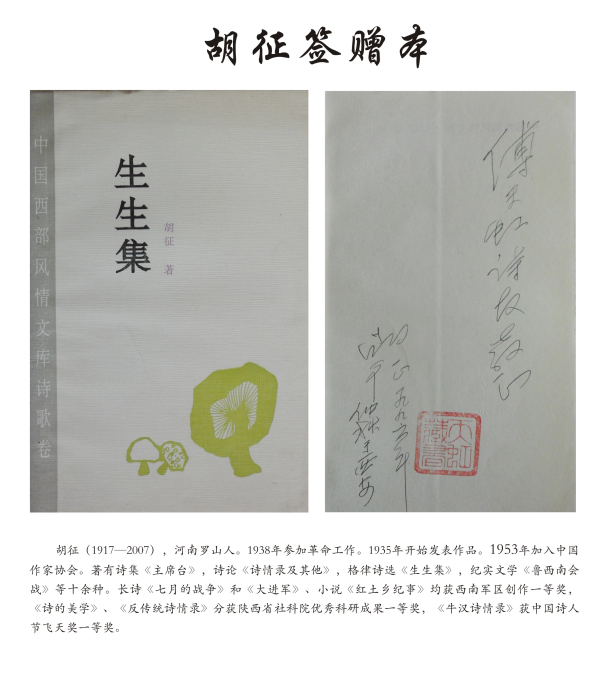 胡征签赠本
中国西部风情文库诗歌卷
生生集
胡征 著
傅天虹诗友教正
胡征一九九六年
仲秋于西安
天虹
藏书
胡征（1917—2007），河南罗山人。1938年参加革命工作。1935年开始发表作品。1953年加入中国
作家协会。著有诗集《主席台》，诗论《诗情录及其他》，格律诗选《生生集》，纪实文学《鲁西南会
战》等十余种。长诗《七月的战争》和《大进军》、小说《红土乡纪事》均获西南军区创作一等奖，
《诗的美学》、《反传统诗情录》分获陕西省社科院优秀科研成果一等奖，《牛汉诗情录》获中国诗人
节飞天奖一等奖。